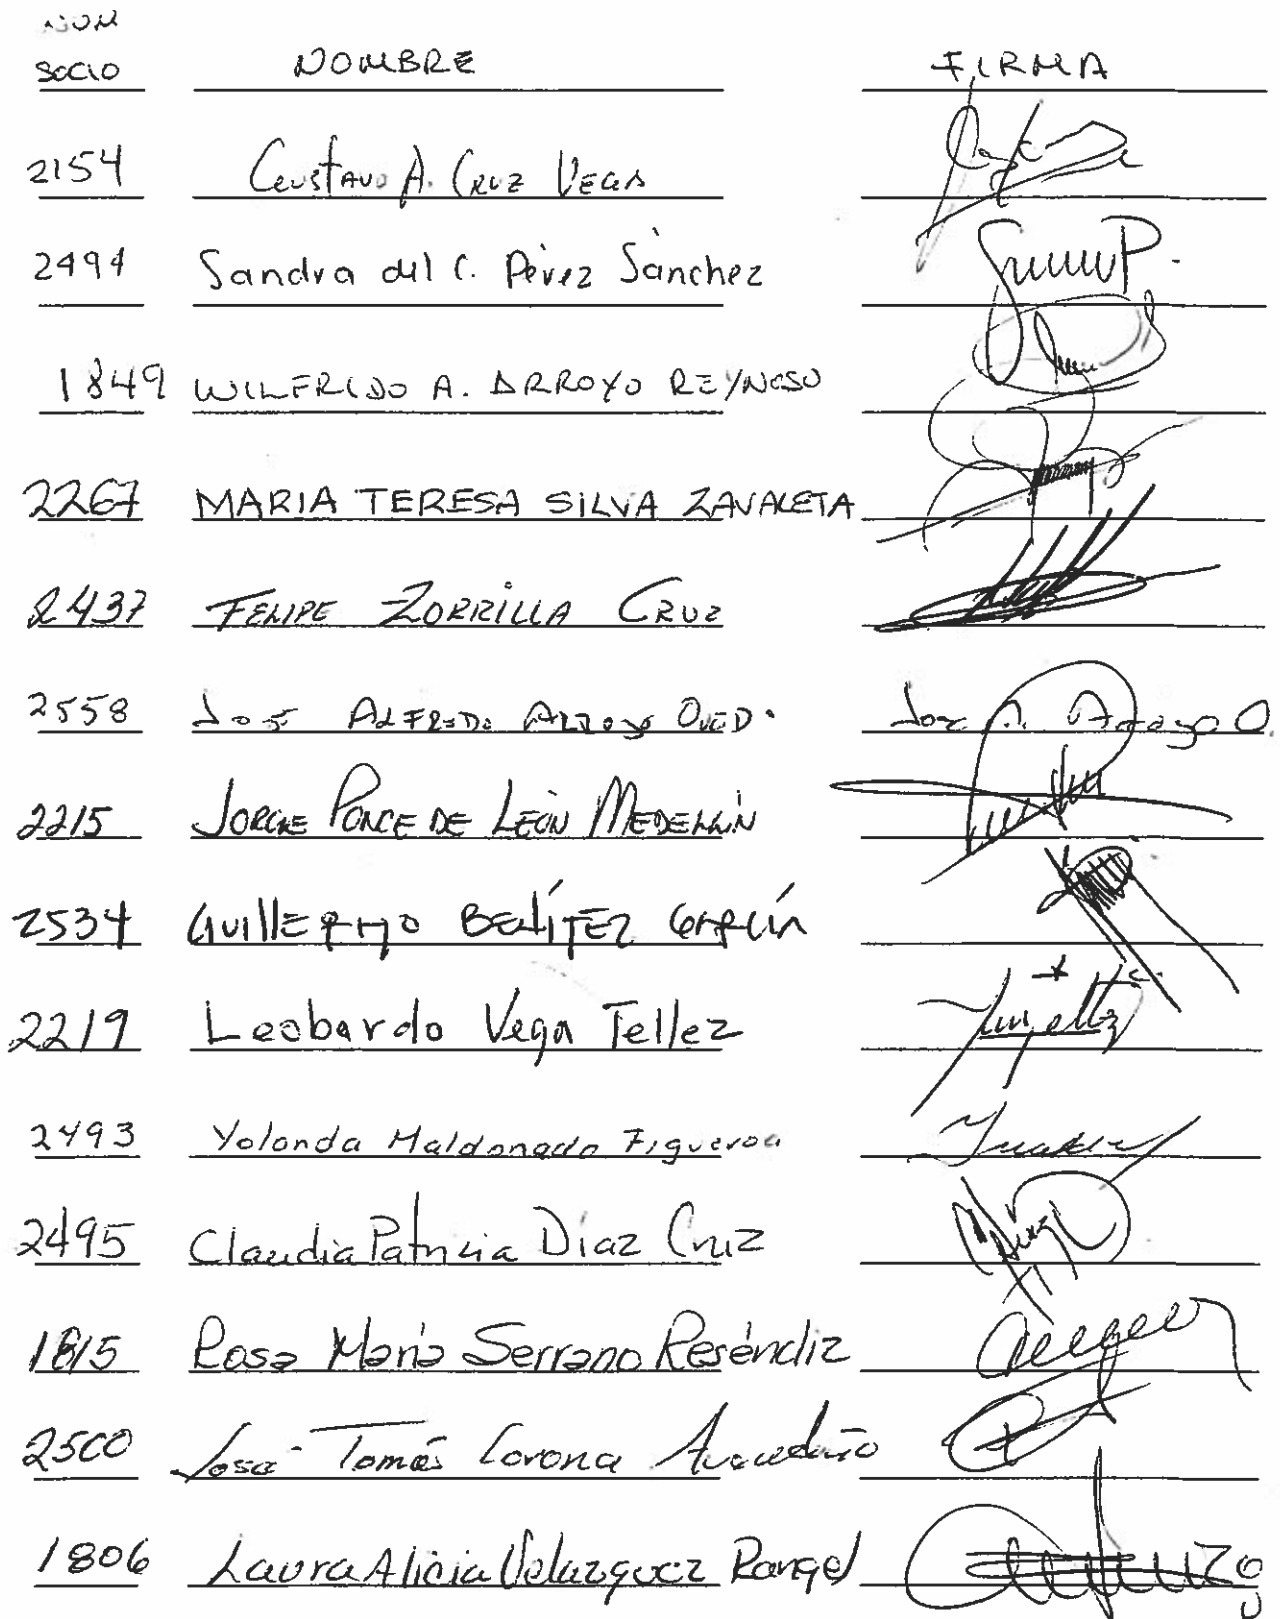 NUM
SOCIO NOMBRE FIRMA
2154 Gustavo A. Cruz Vega
2494 Sandra del C. Pérez Sánchez
1849 WILFRIDO A. ARROYO REYNOSO
2267 MARIA TERESA SILVA ZAVALETA
2437 FELIPE ZORRILLA CRUZ
2558 José ALFREDO Arroyo Jose A. Arroyo O.
2215 JORGE PONCE DE LEÓN MEDELLÍN
2534 GUILLERMO BENÍTEZ GARCÍA
2219 Leobardo Vega Tellez
2493 Yolanda Maldonado Figueroa
2495 Claudia Patricia Díaz Cruz
1815 Rosa María Serrano Reséndiz
2500 José Tomás Corona
1806 Laura Alicia Velazquez Rangel